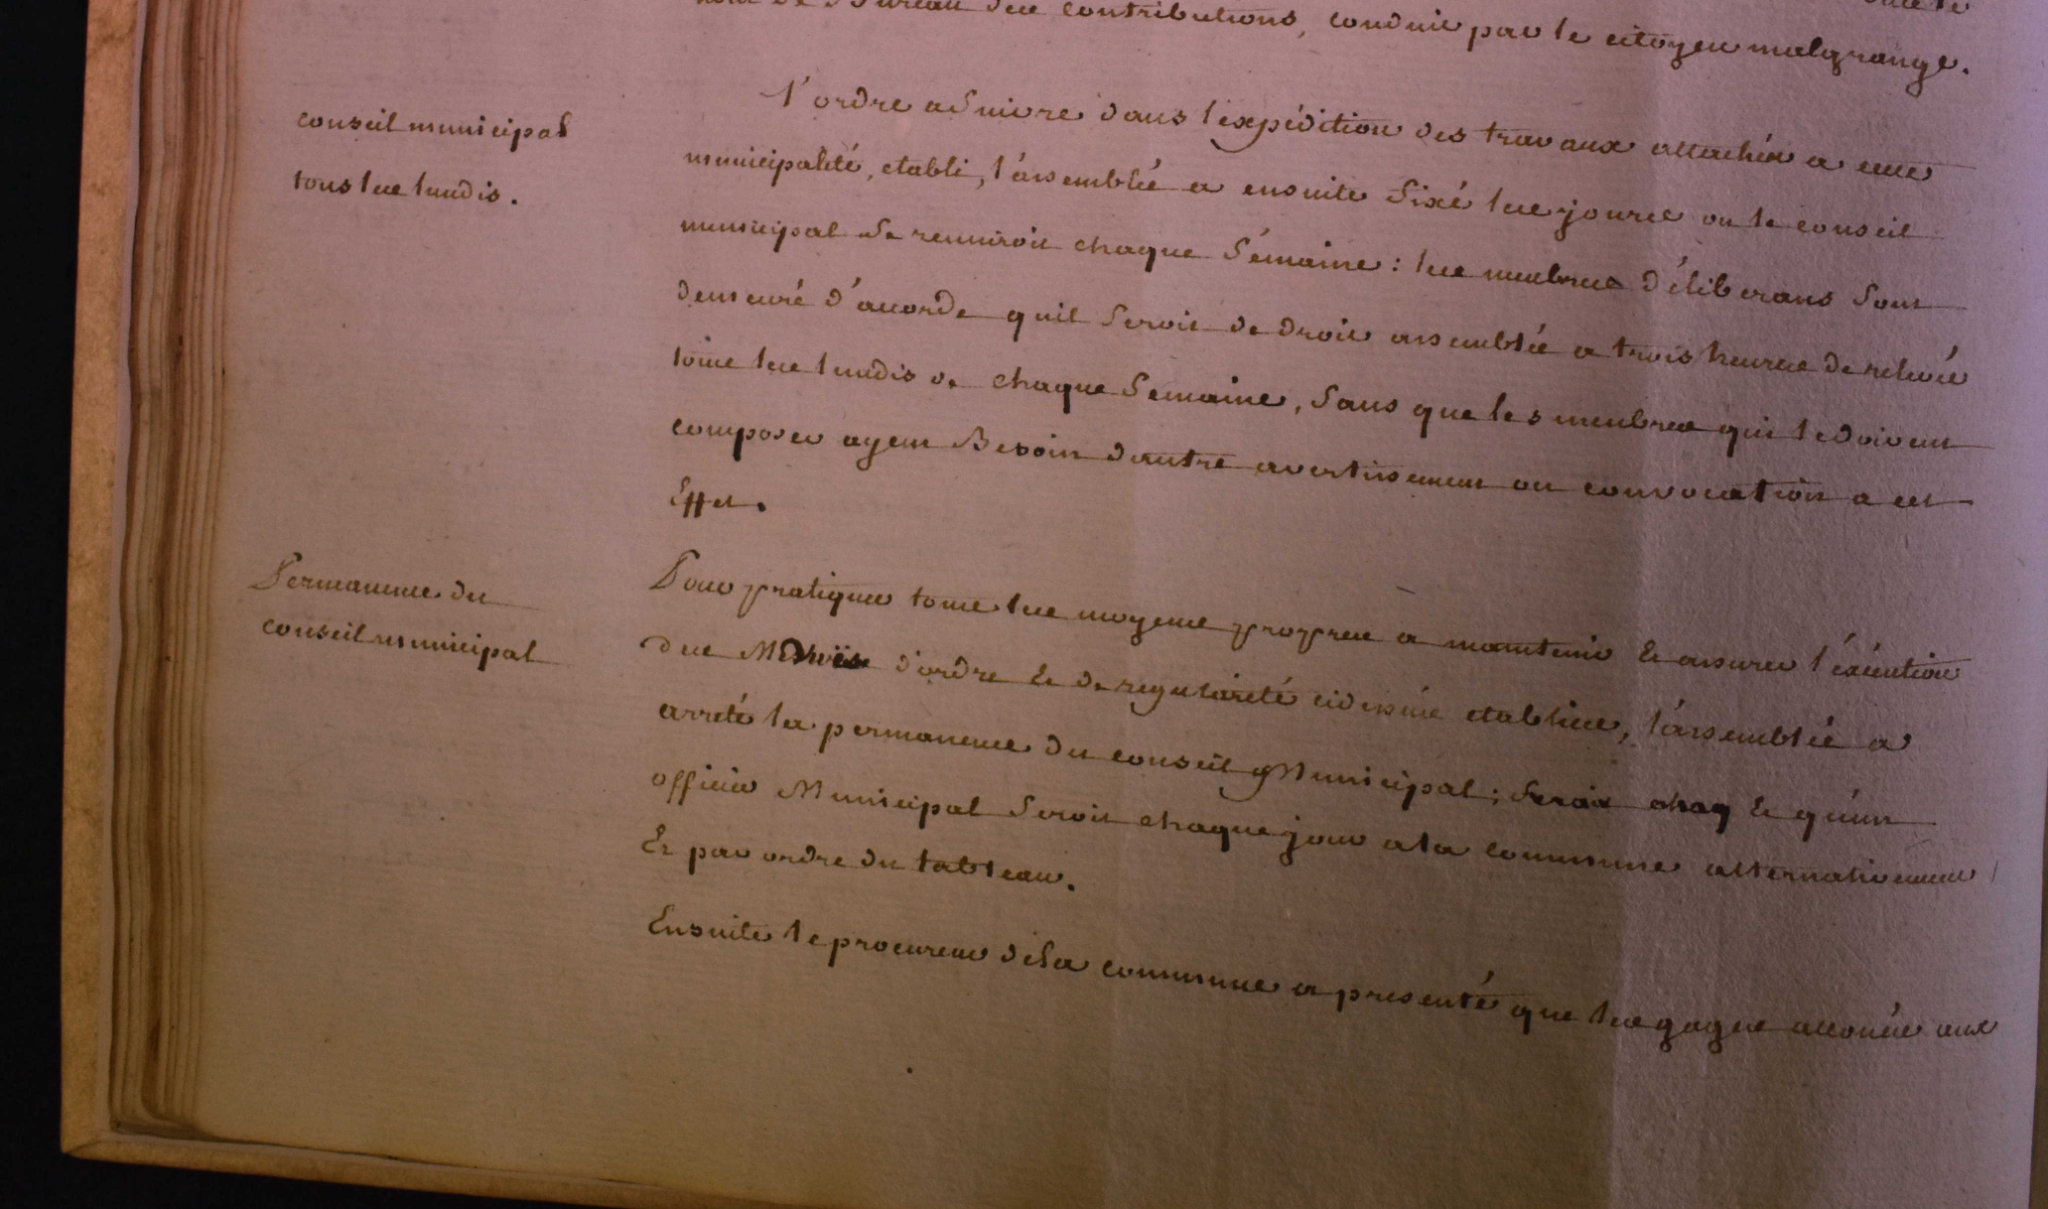 de Bureau des contributions, conduit par le citoyen malgrange.
conseil municipal
tous les lundis.
l'ordre a Suivre dans l'expédition des travaux attachés a cette
municipalité, etabli, l'assemblée a ensuite fixé les jours ou le conseil
municipal Se reuniroit chaque Sémaine : les membres déliberans Sont
demeuré d'accorde quil Seroit de droit assemblée a trois heures de relevée
tous les lundis de chaque Semaine, Sans que les membres qui le doivent
composer ayent Besoin dautre avertissement ou convocation a cet
Effet.
Permanence du
conseil municipal
Pour pratiquer tous les moyens propres a maintenir Et assurer l'éxécution
des d'ordre Et de regularieté cidessus etablies, l'assemblée a
arreté la permanence du conseil Municipal ; Serai chaq Et qu'un
officier Municipal Seroit chaque jour a la commune alternativement
Et par ordre du tableau.
Ensuite le procureur dela commune a presenté que les gages accordés aux